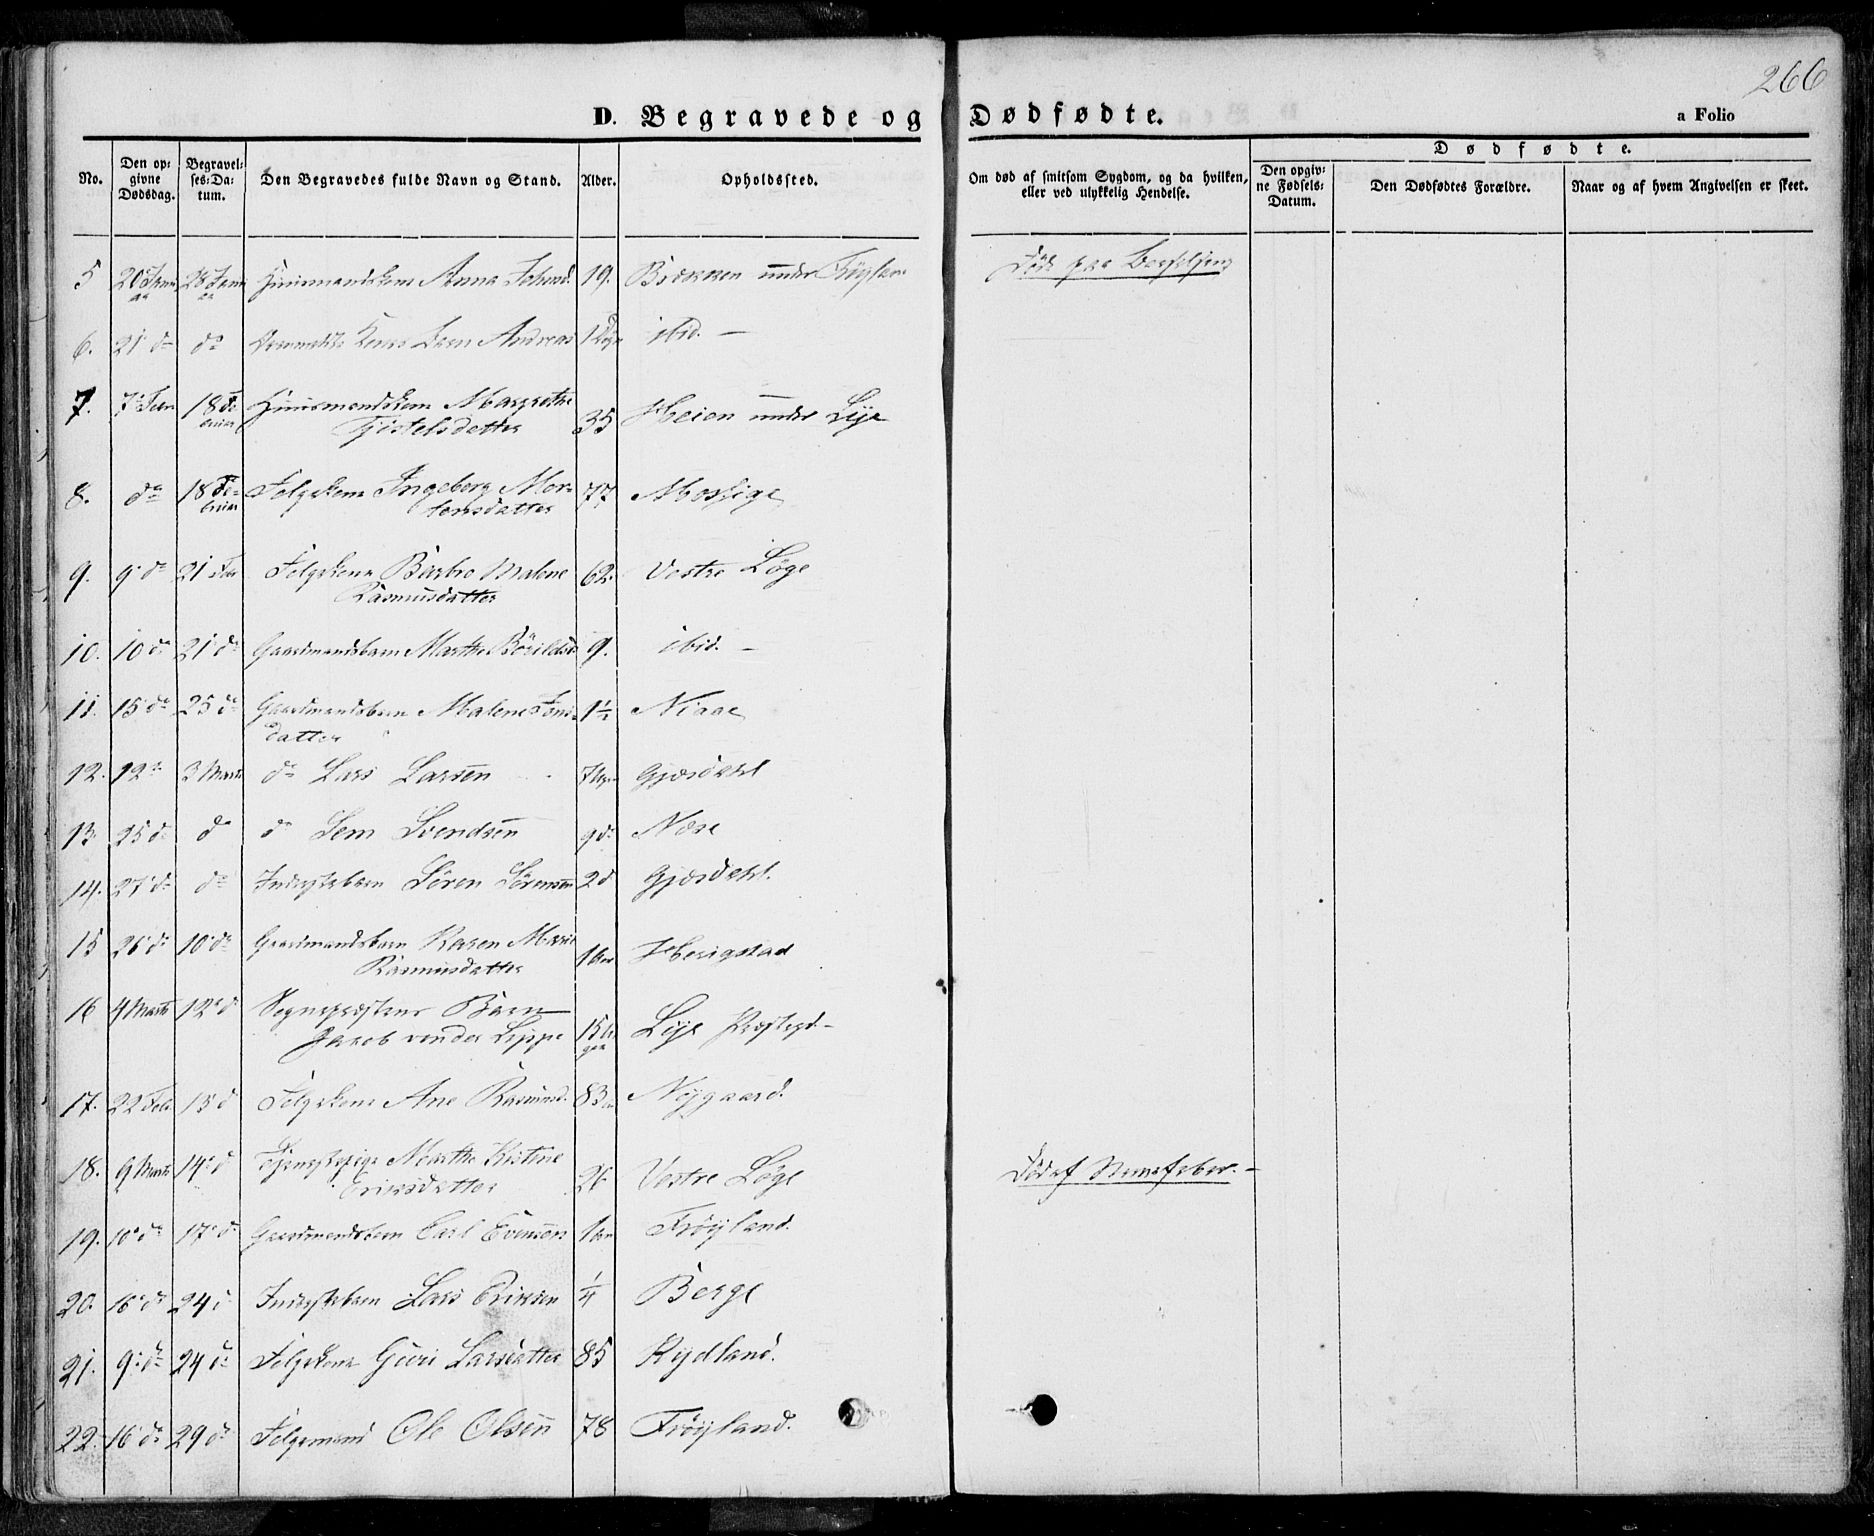 266
D. Begravede og Dødfødte.
a Folio
No.
Den op-
givne
Dødsdag.
Begravel-
ses-Da-
tum.
Den Begravedes fulde Navn og Stand.
Alder.
Opholdssted.
Om død af smitsom Sygdom, og da hvilken,
eller ved ulykkelig Hendelse.
Dødfødte.
Den opgiv-
ne Fødsels-
Datum.
Den Dødfødtes Forældre.
Naar og af hvem Angivelsen er skeet.
5 20 Janu 28 Janu Huusmandskone Anna 19. Brekken under Frøyland
6. 21 do do Andreas ibid. —
7. 7 Feb 18 Fe- Huusmandskone Margrethe
bruar Tjøstelsdatter 35 Heien under Lye
8. do 18 Fe- Folgekone Ingeborg Mor- 77 Mossige
bruar tensdatter
9. 9 do 21 Feb Folgekone Barbro Malene 62. Vestre Løge
Rasmusdatter
10. 10 do 21 do Gaardmandsbarn Marthe Børildsd 9. ibid. —
11. 15 do 25 do Gaardmandsbarn Malene Jons- 1½ Niaae
datter
12. 12 do 3 Marts do Lars Larsen Gjesdahl
13. 25 do do do Sem Svendsen 9 do Nese
14. 27 do do Inderstebarn Søren Sørensen 2 d Gjesdahl.
15 26 do 10 do Gaardmandsbarn Karen Marie
Rasmusdatter 1 Herigstad
16 4 Marts 12 d Sognepræstens Barn
Jacob von der Lippe 15 Lye Præstegd —
17. 22 Feb 15 d Folgekone Ane Rasmusd. 83 Nygaard.
18. 9 Marts 14 d Tjenestepige Marthe Kistine
Eriksdatter 26 Vestre Løge Død af Nervefeber. —
19. 10 do 17 d Gaardmandsbarn Carl Evensen 1 Frøyland.
20. 16 do 24 d Inderstebarn Lars Eriksen ¼ Berge
21. 9 do 24 do Folgekone Guri Larsdatter 85 Rydland.
22. 16 do 29 do Folgemand Ole Olsen 78 Frøyland.